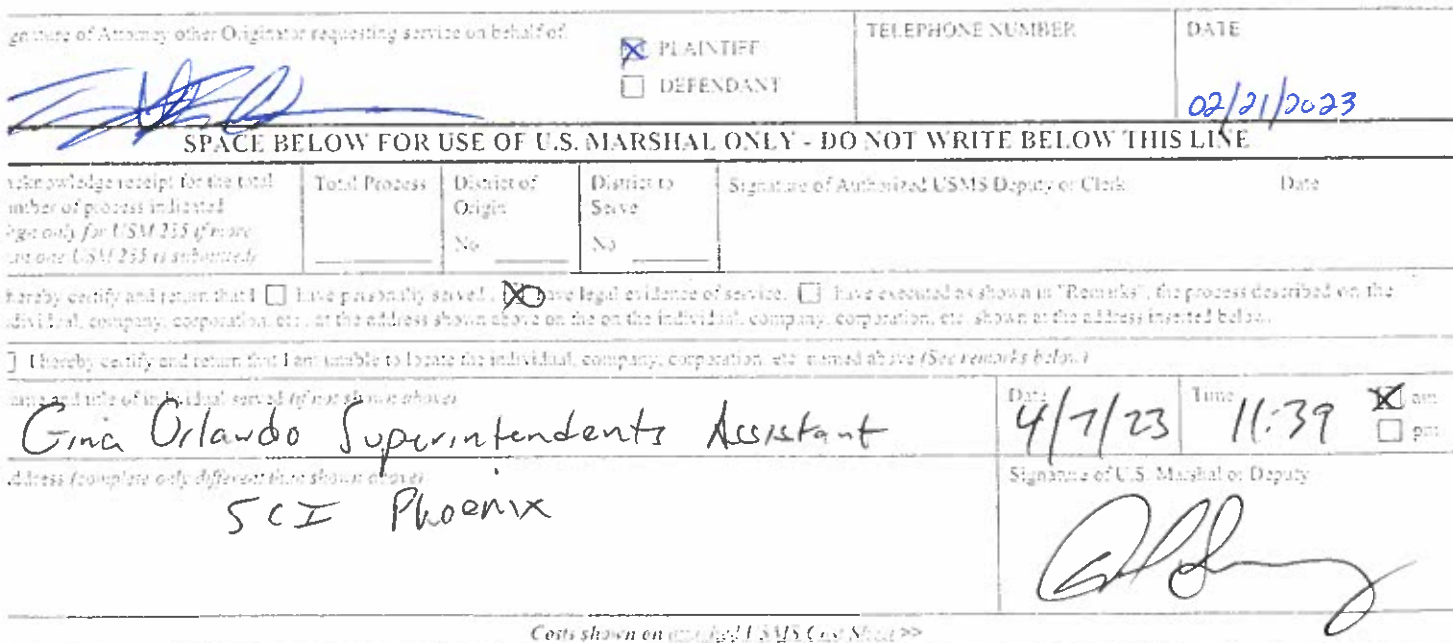 gnature of Attorney other Originator requesting service on behalf of:
PLAINTIFF
DEFENDANT
TELEPHONE NUMBER
DATE
02/21/2023
SPACE BELOW FOR USE OF U.S. MARSHAL ONLY - DO NOT WRITE BELOW THIS LINE
acknowledge receipt for the total
umber of process indicated.
only for USM 285 if more
an one USM 285 is submitted)
Total Process
District of
Origin
No.
District to
Serve
No.
Signature of Authorized USMS Deputy or Clerk
Date
hereby certify and return that I have personally served, have legal evidence of service, have executed as shown in "Remarks", the process described on the
dividual, company, corporation, etc., at the address shown above on the on the individual, company, corporation, etc. shown at the address inserted below.
I hereby certify and return that I am unable to locate the individual, company, corporation, etc. named above (See remarks below)
ame and title of individual served (if not shown above)
Gina Orlando Superintendents Assistant
Date
4/7/23
Time
11:39
am
pm
address (complete only different than shown above)
SCI Phoenix
Signature of U.S. Marshal or Deputy
Costs shown on attached USMS Cost Sheet >>